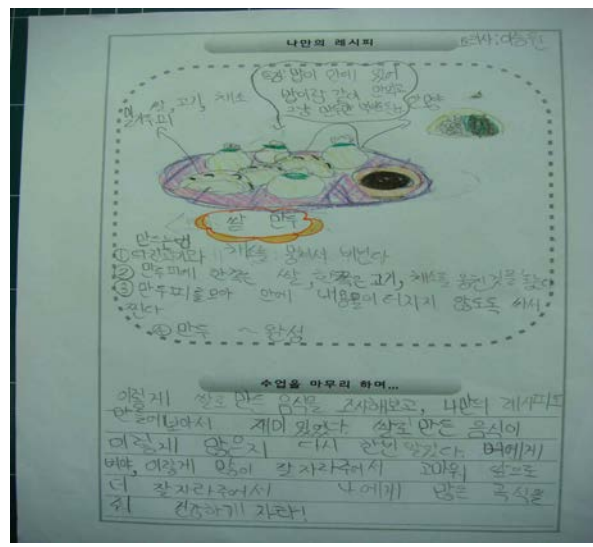 나만의 레시피
특징: 밥이 안에 있어
쌀, 고기, 채소
만두피
쌀 만두
만드는 법
① 다진고기와 채소를 뭉쳐서 비빈다
② 만두피에 한쪽은 쌀, 한쪽은 고기, 채소를 뭉친 것을 놓는다
③ 만두피를 모아 안에 내용물이 터지지 않도록 싸서
찐다
④ 만두 ~ 완성
수업을 마무리 하며...
이렇게 쌀로 만든 음식을 조사해보고, 나만의 레시피도
만들어보아서 재미 있었다. 쌀로 만든 음식이
이렇게 많은지 다시 한번 알았다. 벼에게
벼야, 이렇게 많이 잘 자라주어서 고마워 앞으로
더 잘 자라주어서 나에게 많은 곡식을
줘 건강하게 자라!